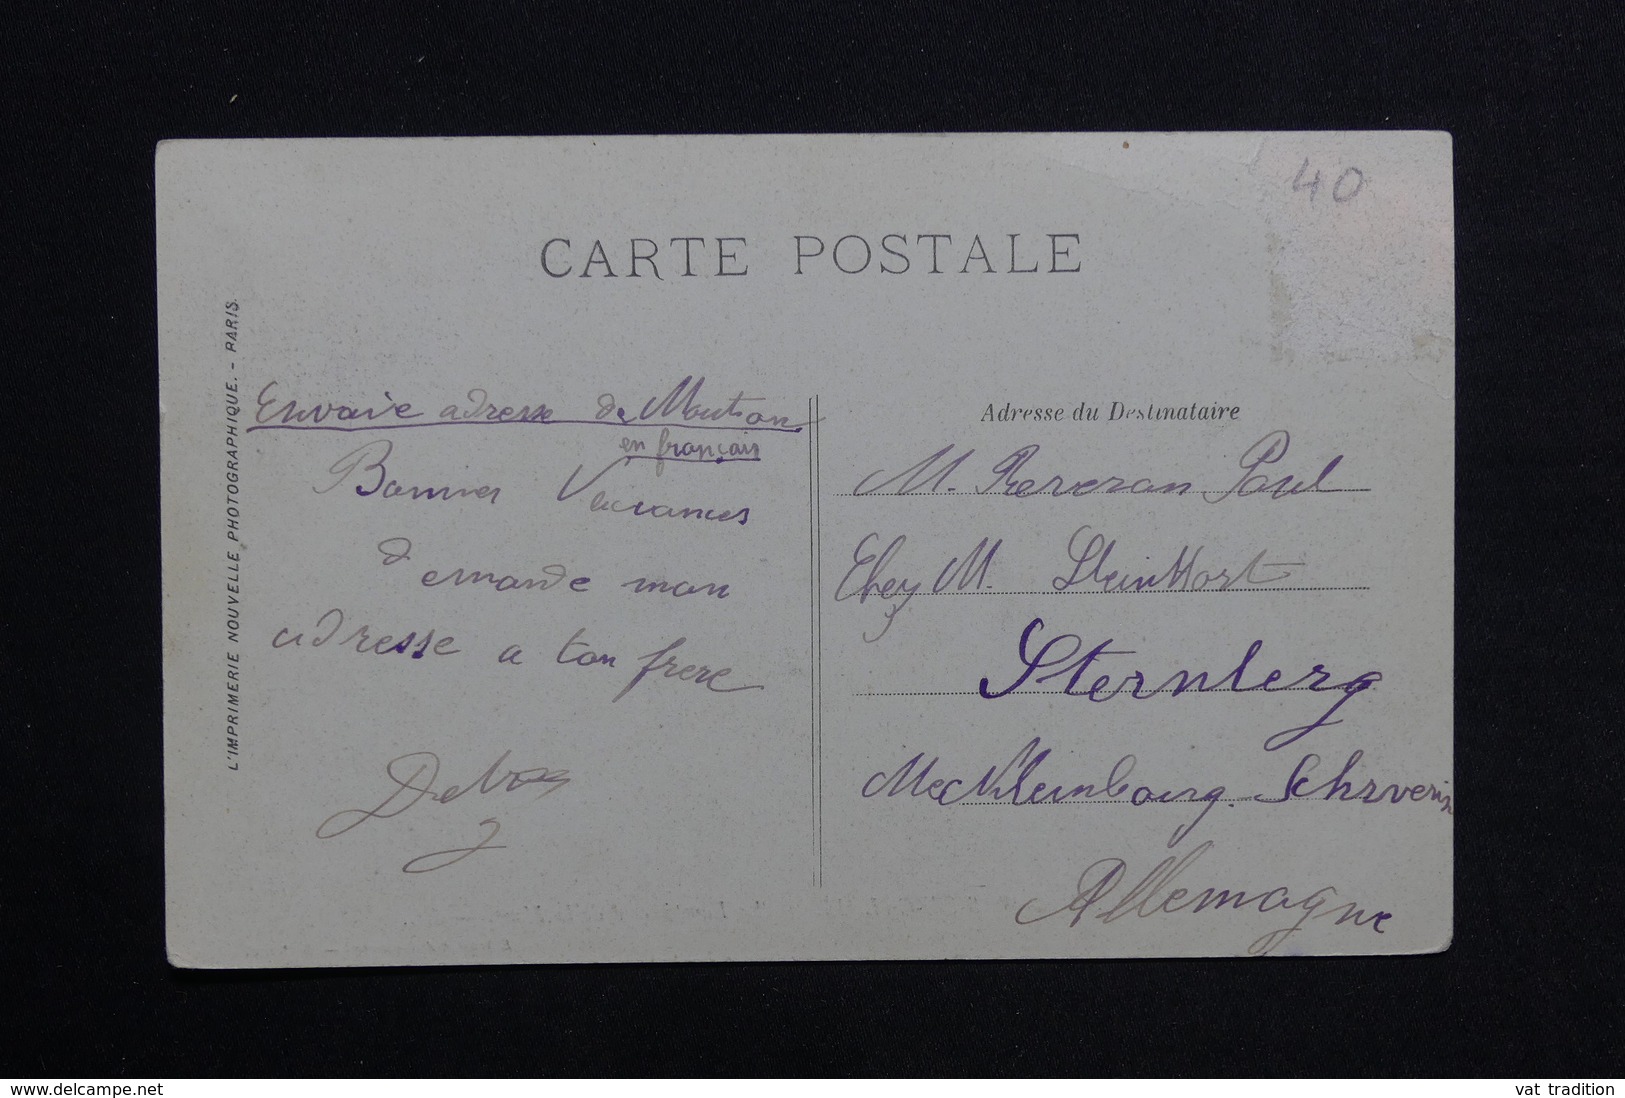 40
CARTE POSTALE
L'IMPRIMERIE NOUVELLE PHOTOGRAPHIQUE. - PARIS.
Envoie adresse de Mouton
en français
Bonnes Vacances
demande mon
adresse a ton frere
Adresse du Destinataire
M. Reveran Paul
Chez M. Steinkort
Sternberg
Mecklembourg. Schwerin
Allemagne
www.delcampe.net
vat_tradition